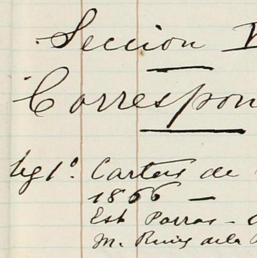 Seccion V
Correspon
Leg 1º. Cartas de
1866 —
Est Porras -
M. Ruiz de la